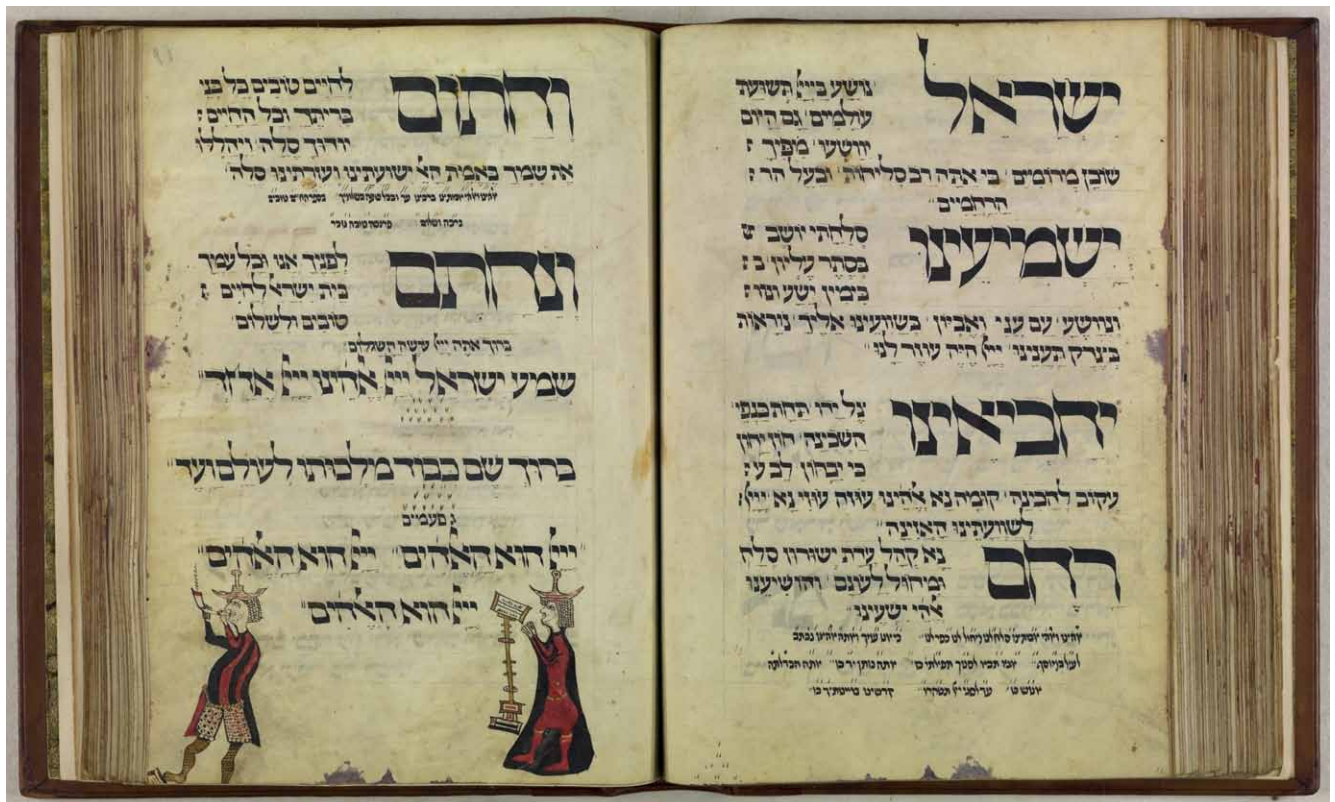 ישראל
נושע בייי תשועת
עולמים גם היום
יוושעו מפיך
שוכן מרומים כי אתה רב סליחות ובעל הר
הרחמים
ישמיענו
סלחתי יושב
בסתר עליון ב
בימין ישע ונוד
ונוושע עם עני ואביון בשוועינו אליך נוראות
בצדק תעננו ייי היה עוזר לנו
יחביאנו
צל ידו תחת כנפי
השכינה חון יחון
כי יבחון לב ע
עקוב להכינה קומה נא אלהינו עוזה עוזי נא ייי
לשוועתינו האזינה
רחם
נא קהל עדת ישורון סלח
ומיחול לעונם והושיענו
אלהי ישעינו
וחתום
לחיים טובים כל בני
בריתך וכל החיים
יודוך סלה ויהללו
את שמך באמת האל ישועתינו ועזרתינו סלה
ברכה ושלום פרנסה טובה
ונחתם
לפניך אנו וכל עמך
בית ישראל לחיים
טובים ולשלום
ברוך אתה ייי עושה השלום
שמע ישראל ייי אלהינו ייי אחד
ברוך שם כבוד מלכותו לעולם ועד
ג פעמים
ייי הוא האלהים ייי הוא האלהים
ייי הוא האלהים